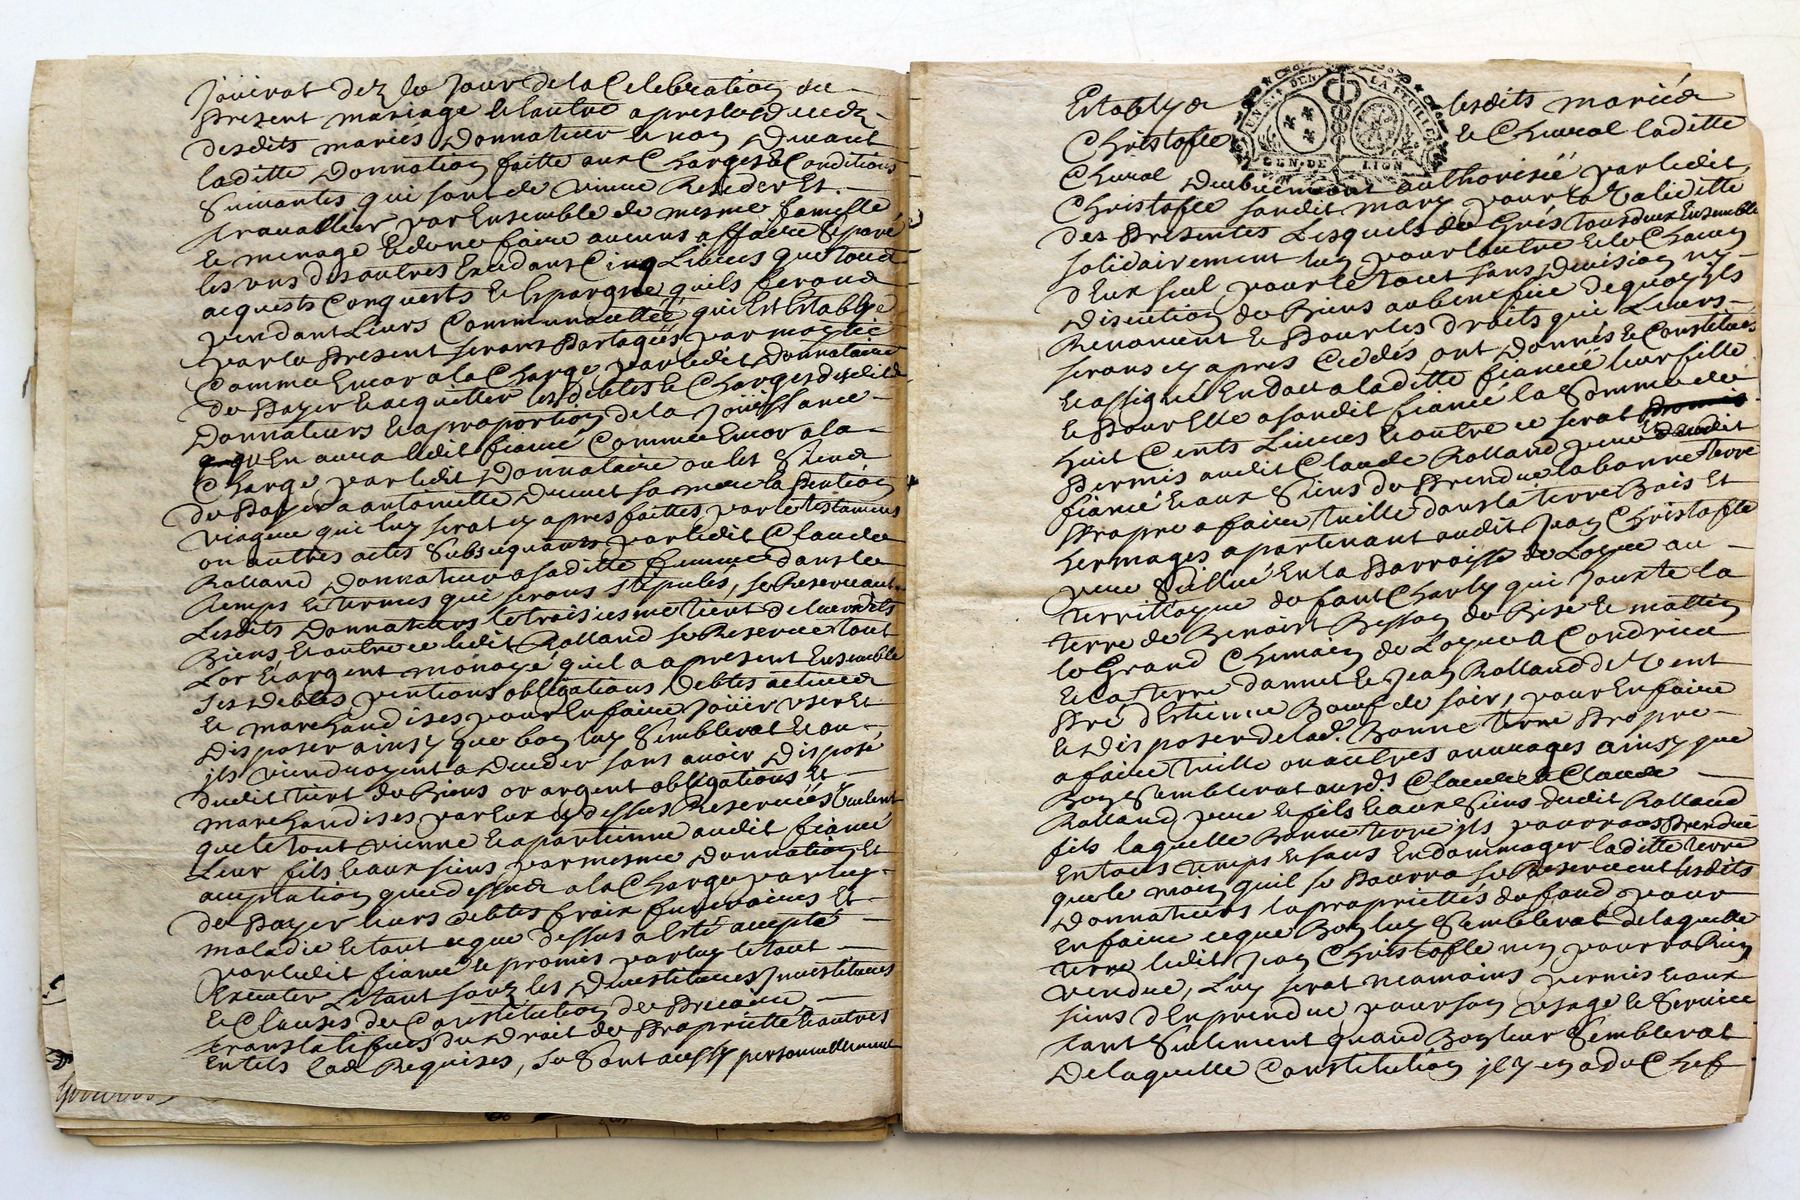 joüirat dez le jour de la Celebration du
present mariage et lautre apres le deceds
desdits mariés Donnateur et non devant
laditte Donnation faitte aux Charges & Conditions
suivantes qui sont de vivre Resider Et
travailler par Ensemble de mesme famille
et menage et de ne faire aucuns affaire separé
les uns des autres Excedant Cinq Livres que tous
acquests Conquests et Espargne quils feront
pendant Leurs Communautté qui Est Establye
par le present serons partagés par moytié
Comme Encor a la Charge par ledit Donnataire
de payer et acquitter les debtes & Charges desdits
Donnateurs et a proportion de la joüissance
quen aura ledit fiancé Comme Encor a la
Charge par ledit Donnataire ou les Siens
de payer a antoinette Ducret sa mere la pention
viagere qui luy serat cy apres faittes par le testament
ou autres actes subsequants par ledit Claude
Rolland Donnateur a saditte femme dans les
temps et termes qui serons stipulés, se Reservant
Lesdits Donnateurs le troisiesme tiert de leursdits
Biens, Et outre ce ledit Rolland se Reserve tout
Lor et argent monoyé quil a a present Ensemble
ses debtes, pentions obligations Debtes actives
et marchandises pour En faire joüir user Et
Disposer ainsy que bon luy Semblerat Et ou
jls viendroyent a Deceder sans avoir Disposé
dudit tiert de Biens or argent obligations Et
marchandises par Eux cy dessus Reservées veulent
que le tout vienne et apartienne audit fiancé
Leur fils et aux siens par mesme Donnation Et
acceptation que dessus a la Charge par luy
de payer leurs debtes fraix funeraires Et
maladie et tant ce que dessus a Esté accepté
par ledit fiancé et promis par luy le tout
Executer Et tant sous les Devestitures Investitures
et Clauses de Constitution de Precaire
translatifves du Droit de Proprietté et autres
En tels Cas Requises, se Sont aussy personnellement
Establys lesdits mariés
Christofle & Cheval laditte
Cheval Deubuement authorisée par ledit
Christofle sondit mary pour la validitté
des Presentes Lesquels de Grés tous deux Ensemble
solidairement lun pour lautre et le Chacun
dEux seul pour le tout sans Division ny
Discution de Biens au benefice de quoy jls
Renoncent & Pour les droits qui Leurs
serons cy apres Ceddés ont Donnés & Constitués
Et assigné En dot a laditte fiancée leur fille
et Pour Elle a sondit fiancé la Somme de
huit Cents Livres Et outre ce serat
Permis audit Claude Rolland pere Et audit
fiancé et aux Siens de Prendre la bonne terre
Propre a faire tuille dans la terre Bois Et
hermages apartenant audit Jean Christofle
pere Scittué En la Parroisse de Loyre au
territtoyre de font Charly qui jouxte la
terre de Benoist Besson de Bise et mattin
le Grand Chemain de Loyre a Condrieu
et la terre dannet et Jean Rolland de vent
Pré dEstienne Bœuf de soir, pour En faire
et Disposer de lad. Bonne terre Propre
a faire tuille ou autres ouvrages ainsy que
Bon Semblerat ausd.s Claude & Claude
Rolland pere et fils et aux Siens dudit Rolland
fils laquelle Bonne terre jls pourrons Prendre
En tous temps Et sans Endommager laditte terre
que le moin quil se Pourra se Reservent lesdits
Donnateurs la propriettés du fond pour
En faire ce que Bon luy Semblerat de laquelle
terre ledit Jean Christofle nen pourra Rien
vendre, Luy serat neamoins permis et aux
siens dEn prendre pour son usage et Service
tant Seulement quand Bon leur Semblerat
De laquelle Constitution jl y en a du Chef
GEN. DE LION